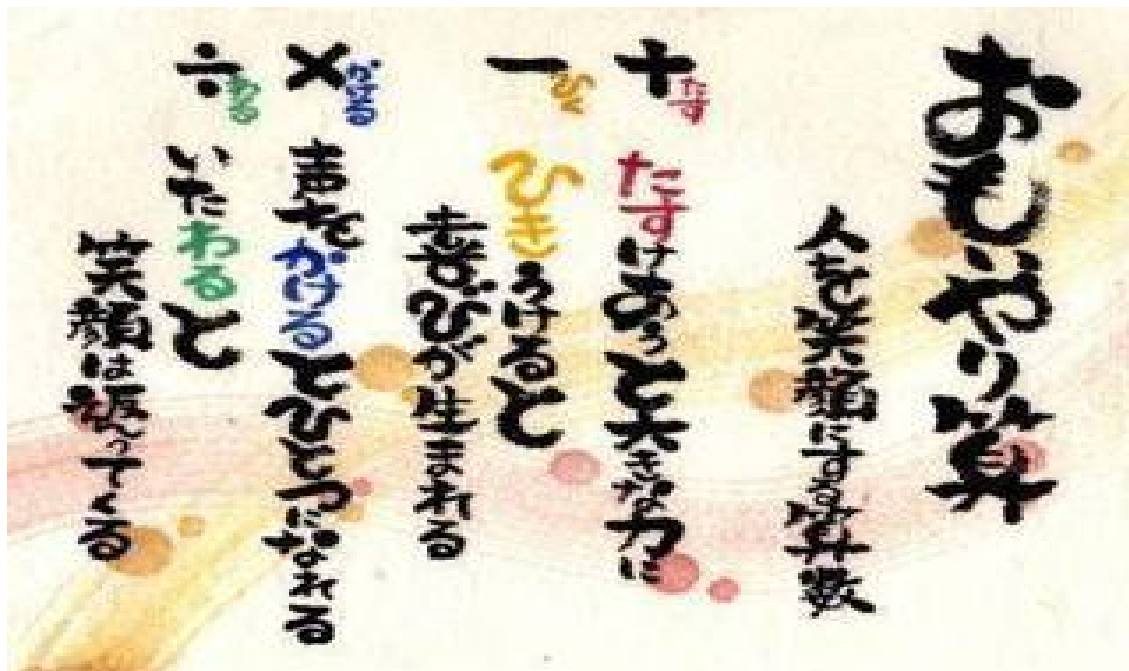 おもいやり算
人を笑顔にする算数
+ たす
たすけあうと大きな力に
− ひく
ひきうけると
喜びが生まれる
× かける
声をかけるとひとつになれる
÷ わる
いたわると
笑顔は返ってくる